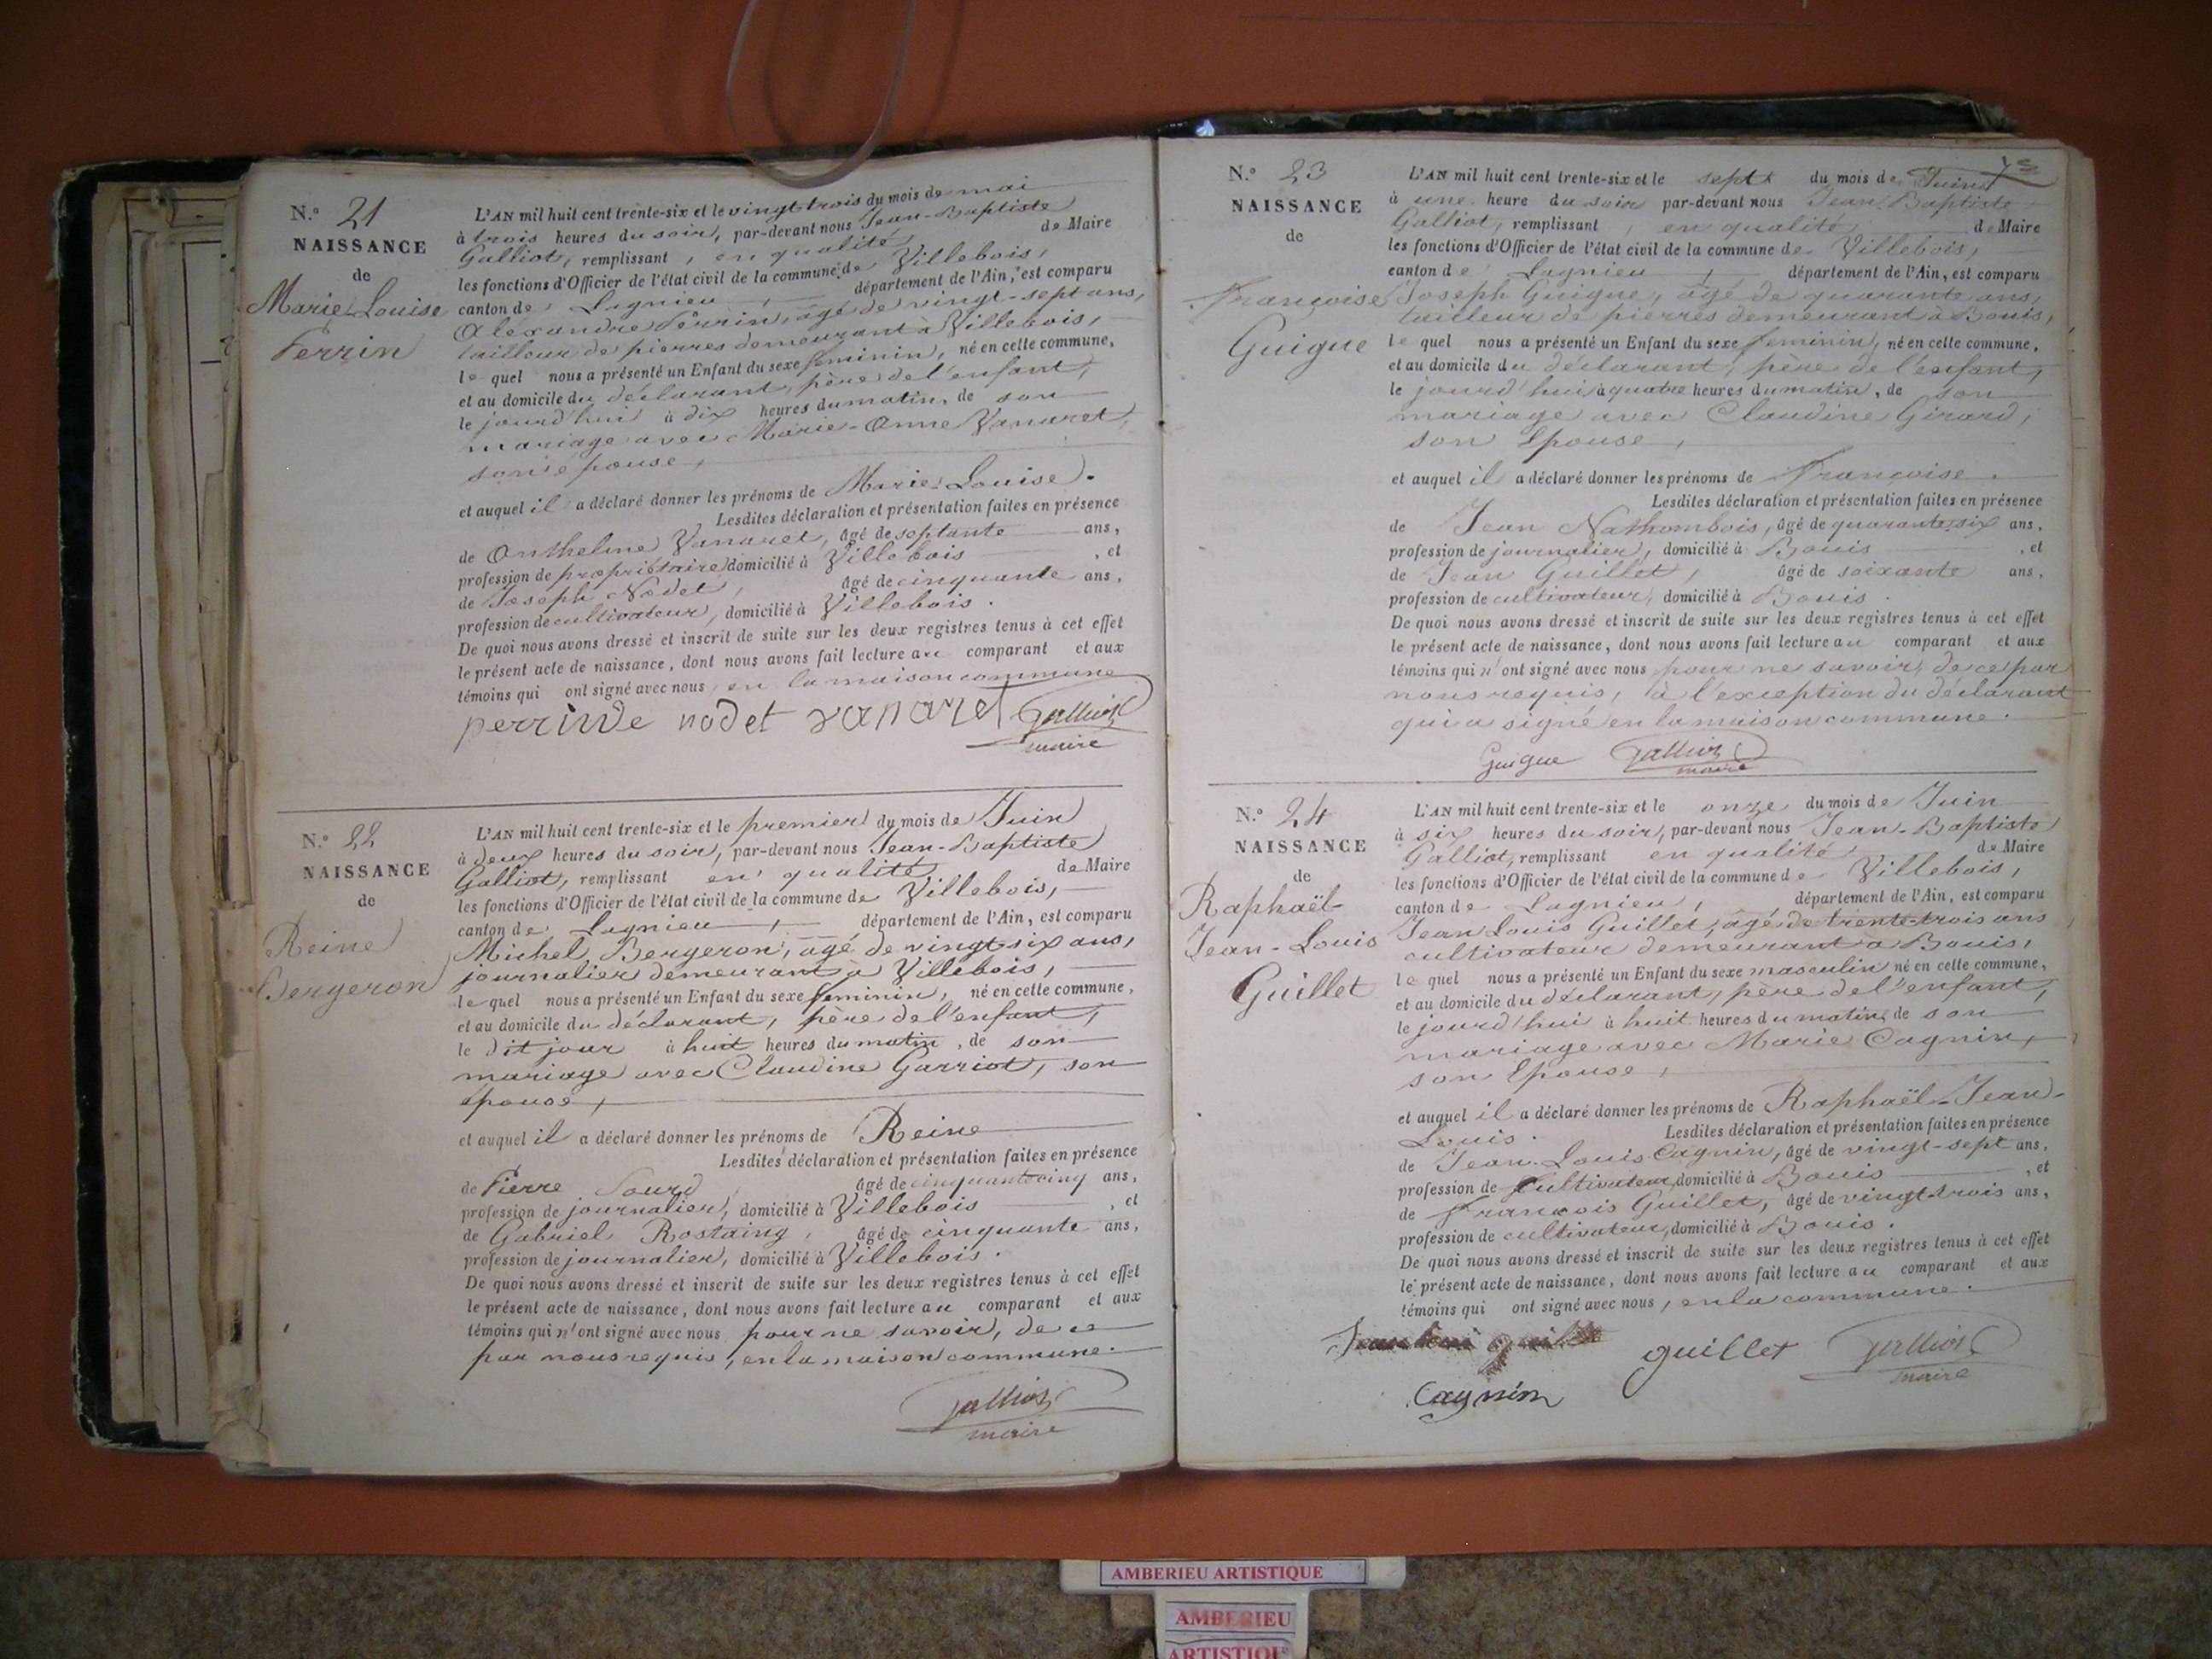 N.º 21
NAISSANCE
de
Marie-Louise
Perrin
L'AN mil huit cent trente-six et le vingt trois du mois de mai
à trois heures du soir, par-devant nous Jean-Baptiste
Galliot, remplissant, en qualité de Maire
les fonctions d'Officier de l'état civil de la commune de Villebois,
canton de Lagnieu, département de l'Ain, est comparu
Alexandre Perrin, âgé de vingt-sept ans,
tailleur de pierres demeurant à Villebois,
lequel nous a présenté un Enfant du sexe feminin, né en cette commune,
et au domicile du déclarant, père de l'enfant,
le jourd'hui à dix heures du matin, de son
mariage avec Marie-Anne Vanaret,
son épouse,
et auquel il a déclaré donner les prénoms de Marie-Louise.
Lesdites déclaration et présentation faites en présence
de Anthelme Vanaret, âgé de septante ans,
profession de propriétaire domicilié à Villebois, et
de Joseph Nodet, âgé de cinquante ans,
profession de cultivateur, domicilié à Villebois.
De quoi nous avons dressé et inscrit de suite sur les deux registres tenus à cet effet
le présent acte de naissance, dont nous avons fait lecture au comparant et aux
témoins qui ont signé avec nous, en la maison commune
nodet vanaret Galliot
maire
N.º 22
NAISSANCE
de
Reine
Bergeron
L'AN mil huit cent trente-six et le premier du mois de Juin
à deux heures du soir, par-devant nous Jean-Baptiste
Galliot, remplissant en qualité de Maire
les fonctions d'Officier de l'état civil de la commune de Villebois,
canton de Lagnieu, département de l'Ain, est comparu
Michel Bergeron, âgé de vingt six ans,
journalier demeurant à Villebois,
lequel nous a présenté un Enfant du sexe feminin, né en cette commune,
et au domicile du déclarant, père de l'enfant,
le dit jour à huit heures du matin, de son
mariage avec Claudine Garriot, son
épouse,
et auquel il a déclaré donner les prénoms de Reine
Lesdites déclaration et présentation faites en présence
de Pierre Sourd, âgé de cinquante cinq ans,
profession de journalier, domicilié à Villebois, et
de Gabriel Rostaing, âgé de cinquante ans,
profession de journalier, domicilié à Villebois.
De quoi nous avons dressé et inscrit de suite sur les deux registres tenus à cet effet
le présent acte de naissance, dont nous avons fait lecture au comparant et aux
témoins qui n'ont signé avec nous pour ne savoir, de ce
par nous requis, en la maison commune.
Galliot
maire
N.º 23
NAISSANCE
de
Françoise
Guigue
L'AN mil huit cent trente-six et le sept du mois de Juin
à une heure du soir par-devant nous Jean Baptiste
Galliot, remplissant, en qualité de Maire
les fonctions d'Officier de l'état civil de la commune de Villebois,
canton de Lagnieu, département de l'Ain, est comparu
Joseph Guigue, âgé de quarante ans,
tailleur de pierres demeurant à Bouis,
lequel nous a présenté un Enfant du sexe feminin, né en cette commune,
et au domicile du déclarant, père de l'enfant,
le jourd'hui à quatre heures du matin, de son
mariage avec Claudine Girard,
son Epouse,
et auquel il a déclaré donner les prénoms de Francoise.
Lesdites déclaration et présentation faites en présence
de Jean Nathombois, âgé de quarante-six ans,
profession de journalier, domicilié à Bouis, et
de Jean Guillet, âgé de soixante ans,
profession de cultivateur, domicilié à Bouis.
De quoi nous avons dressé et inscrit de suite sur les deux registres tenus à cet effet
le présent acte de naissance, dont nous avons fait lecture au comparant et aux
témoins qui n'ont signé avec nous pour ne savoir, de ce par
nous requis, à l'exception du déclarant
qui a signé en la maison commune.
Guigue Galliot
maire
N.º 24
NAISSANCE
de
Raphaël-
Jean-Louis
Guillet
L'AN mil huit cent trente-six et le onze du mois de Juin
à six heures du soir, par-devant nous Jean-Baptiste
Galliot, remplissant en qualité de Maire
les fonctions d'Officier de l'état civil de la commune de Villebois,
canton de Lagnieu, département de l'Ain, est comparu
Jean Louis Guillet, âgé de trente-trois ans
cultivateur demeurant à Bouis,
lequel nous a présenté un Enfant du sexe masculin né en cette commune,
et au domicile du déclarant, père de l'enfant,
le jourd'hui à huit heures du matin, de son
mariage avec Marie Cagnin,
son Epouse,
et auquel il a déclaré donner les prénoms de Raphaël-Jean-
Louis. Lesdites déclaration et présentation faites en présence
de Jean-Louis Cagnin, âgé de vingt-sept ans,
profession de Cultivateur, domicilié à Bouis, et
de François Guillet, âgé de vingt-trois ans,
profession de cultivateur, domicilié à Bouis.
De quoi nous avons dressé et inscrit de suite sur les deux registres tenus à cet effet
le présent acte de naissance, dont nous avons fait lecture au comparant et aux
témoins qui ont signé avec nous, en la commune.
guillet Galliot
maire
Cagnin
AMBERIEU ARTISTIQUE
AMBERIEU
ARTISTIQUE